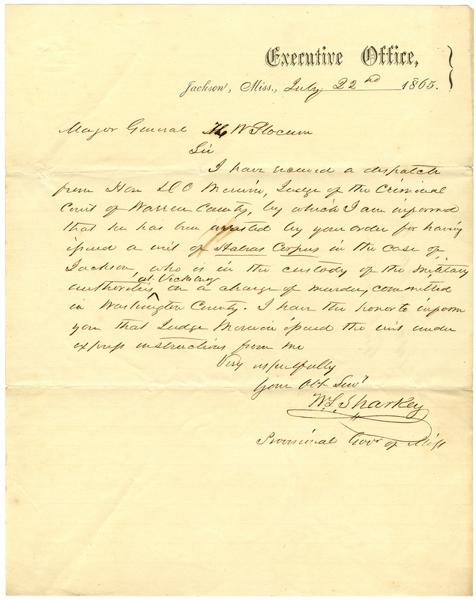 Executive Office,
Jackson, Miss., July 22nd 1865.
Major General H W Slocum
Sir
I have received a dispatch
from Hon D O Merwin, Judge of the Criminal
Court of Warren County, by which I am informed
that he has been arrested by your order for having
issued a writ of Habeas Corpus in the case of
Jackson, who is in the custody of the military
authorities at Vicksburg on a charge of murder, committed
in Washington County. I have the honor to inform
you that Judge Merwin issued the writ under
express instructions from me
Very respectfully
Your Obt Servt
W. L. Sharkey
Provisional Govr of Miss